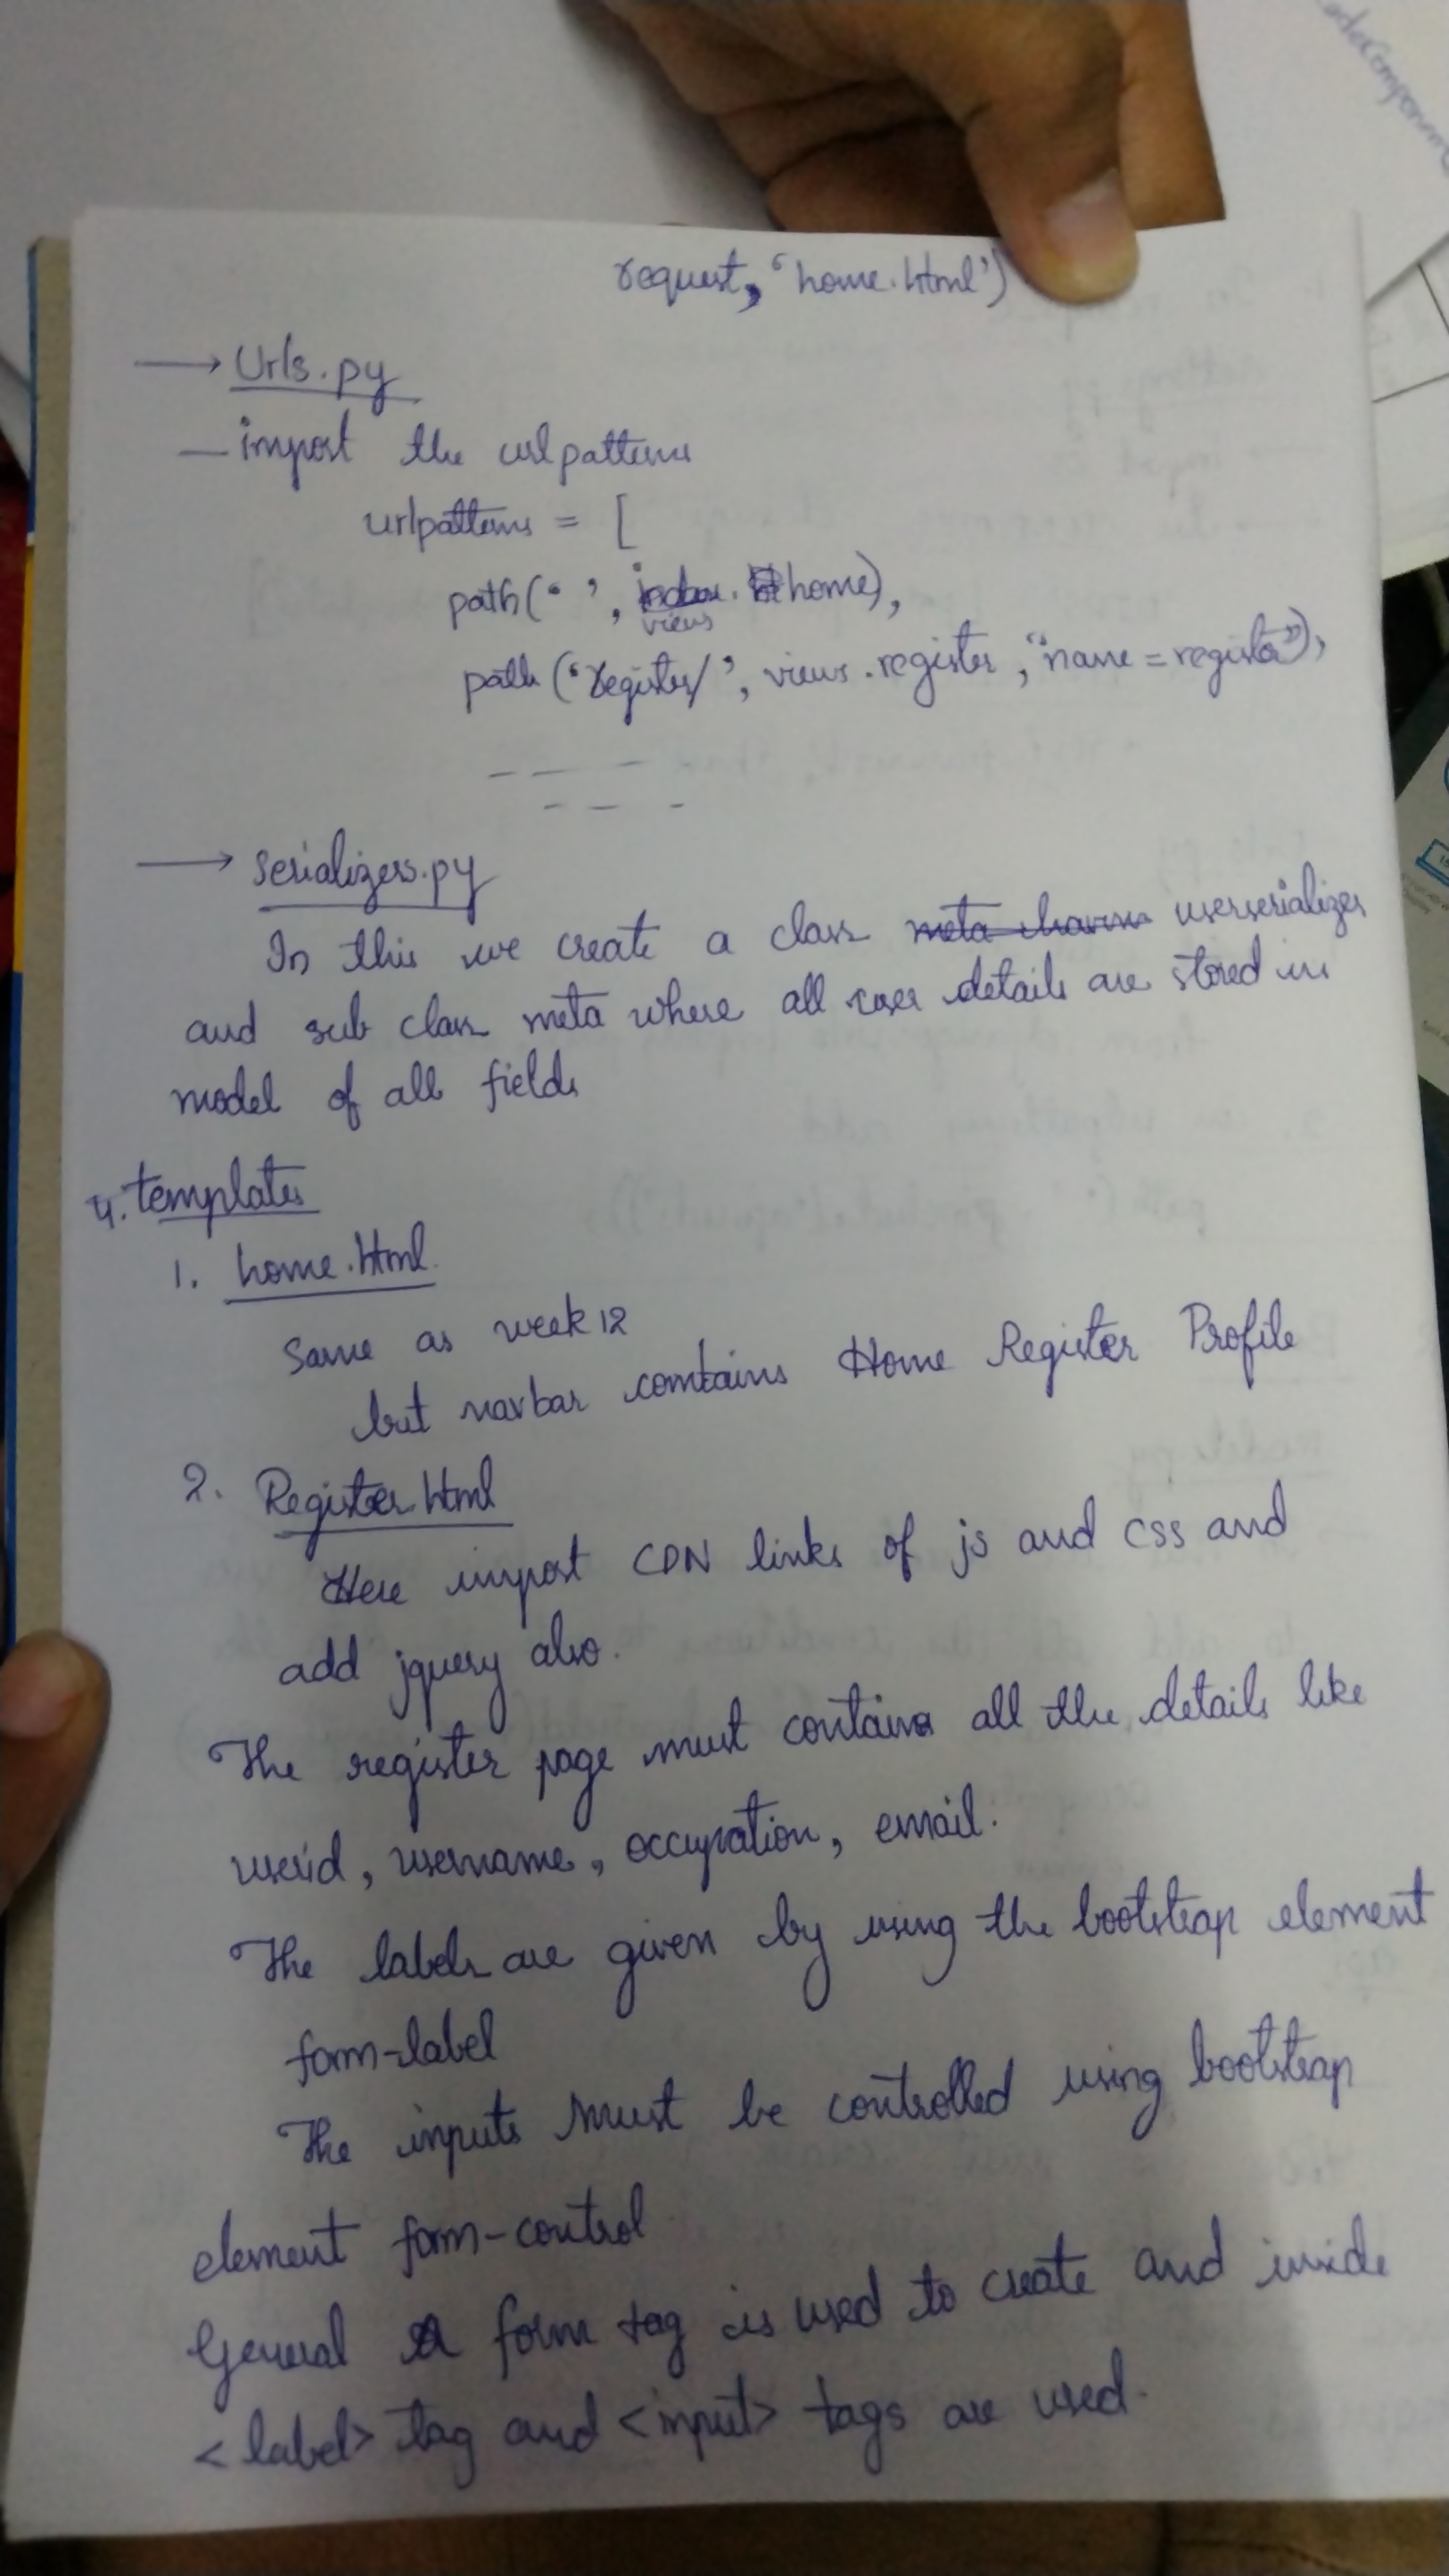 adeComponent
request, 'home.html')
→ Urls.py
— import the urlpatterns
urlpatterns = [
path(' ', views.home),
path('register/', views.register, "name=register"),
— — —
— — —
→ serializers.py
In this we create a class meta userserializer
and sub class meta where all user details are stored in
model of all fields
4. templates
1. home.html
Same as week 12
but navbar contains Home Register Profile
2. Register.html
Here import CDN links of js and css and
add jquery also.
The register page must contains all the details like
userid, username, occupation, email.
The labels are given by using the bootstrap element
form-label
The inputs must be controlled using bootstrap
element form-control
General a form tag is used to create and inside
<label> tag and <input> tags are used.